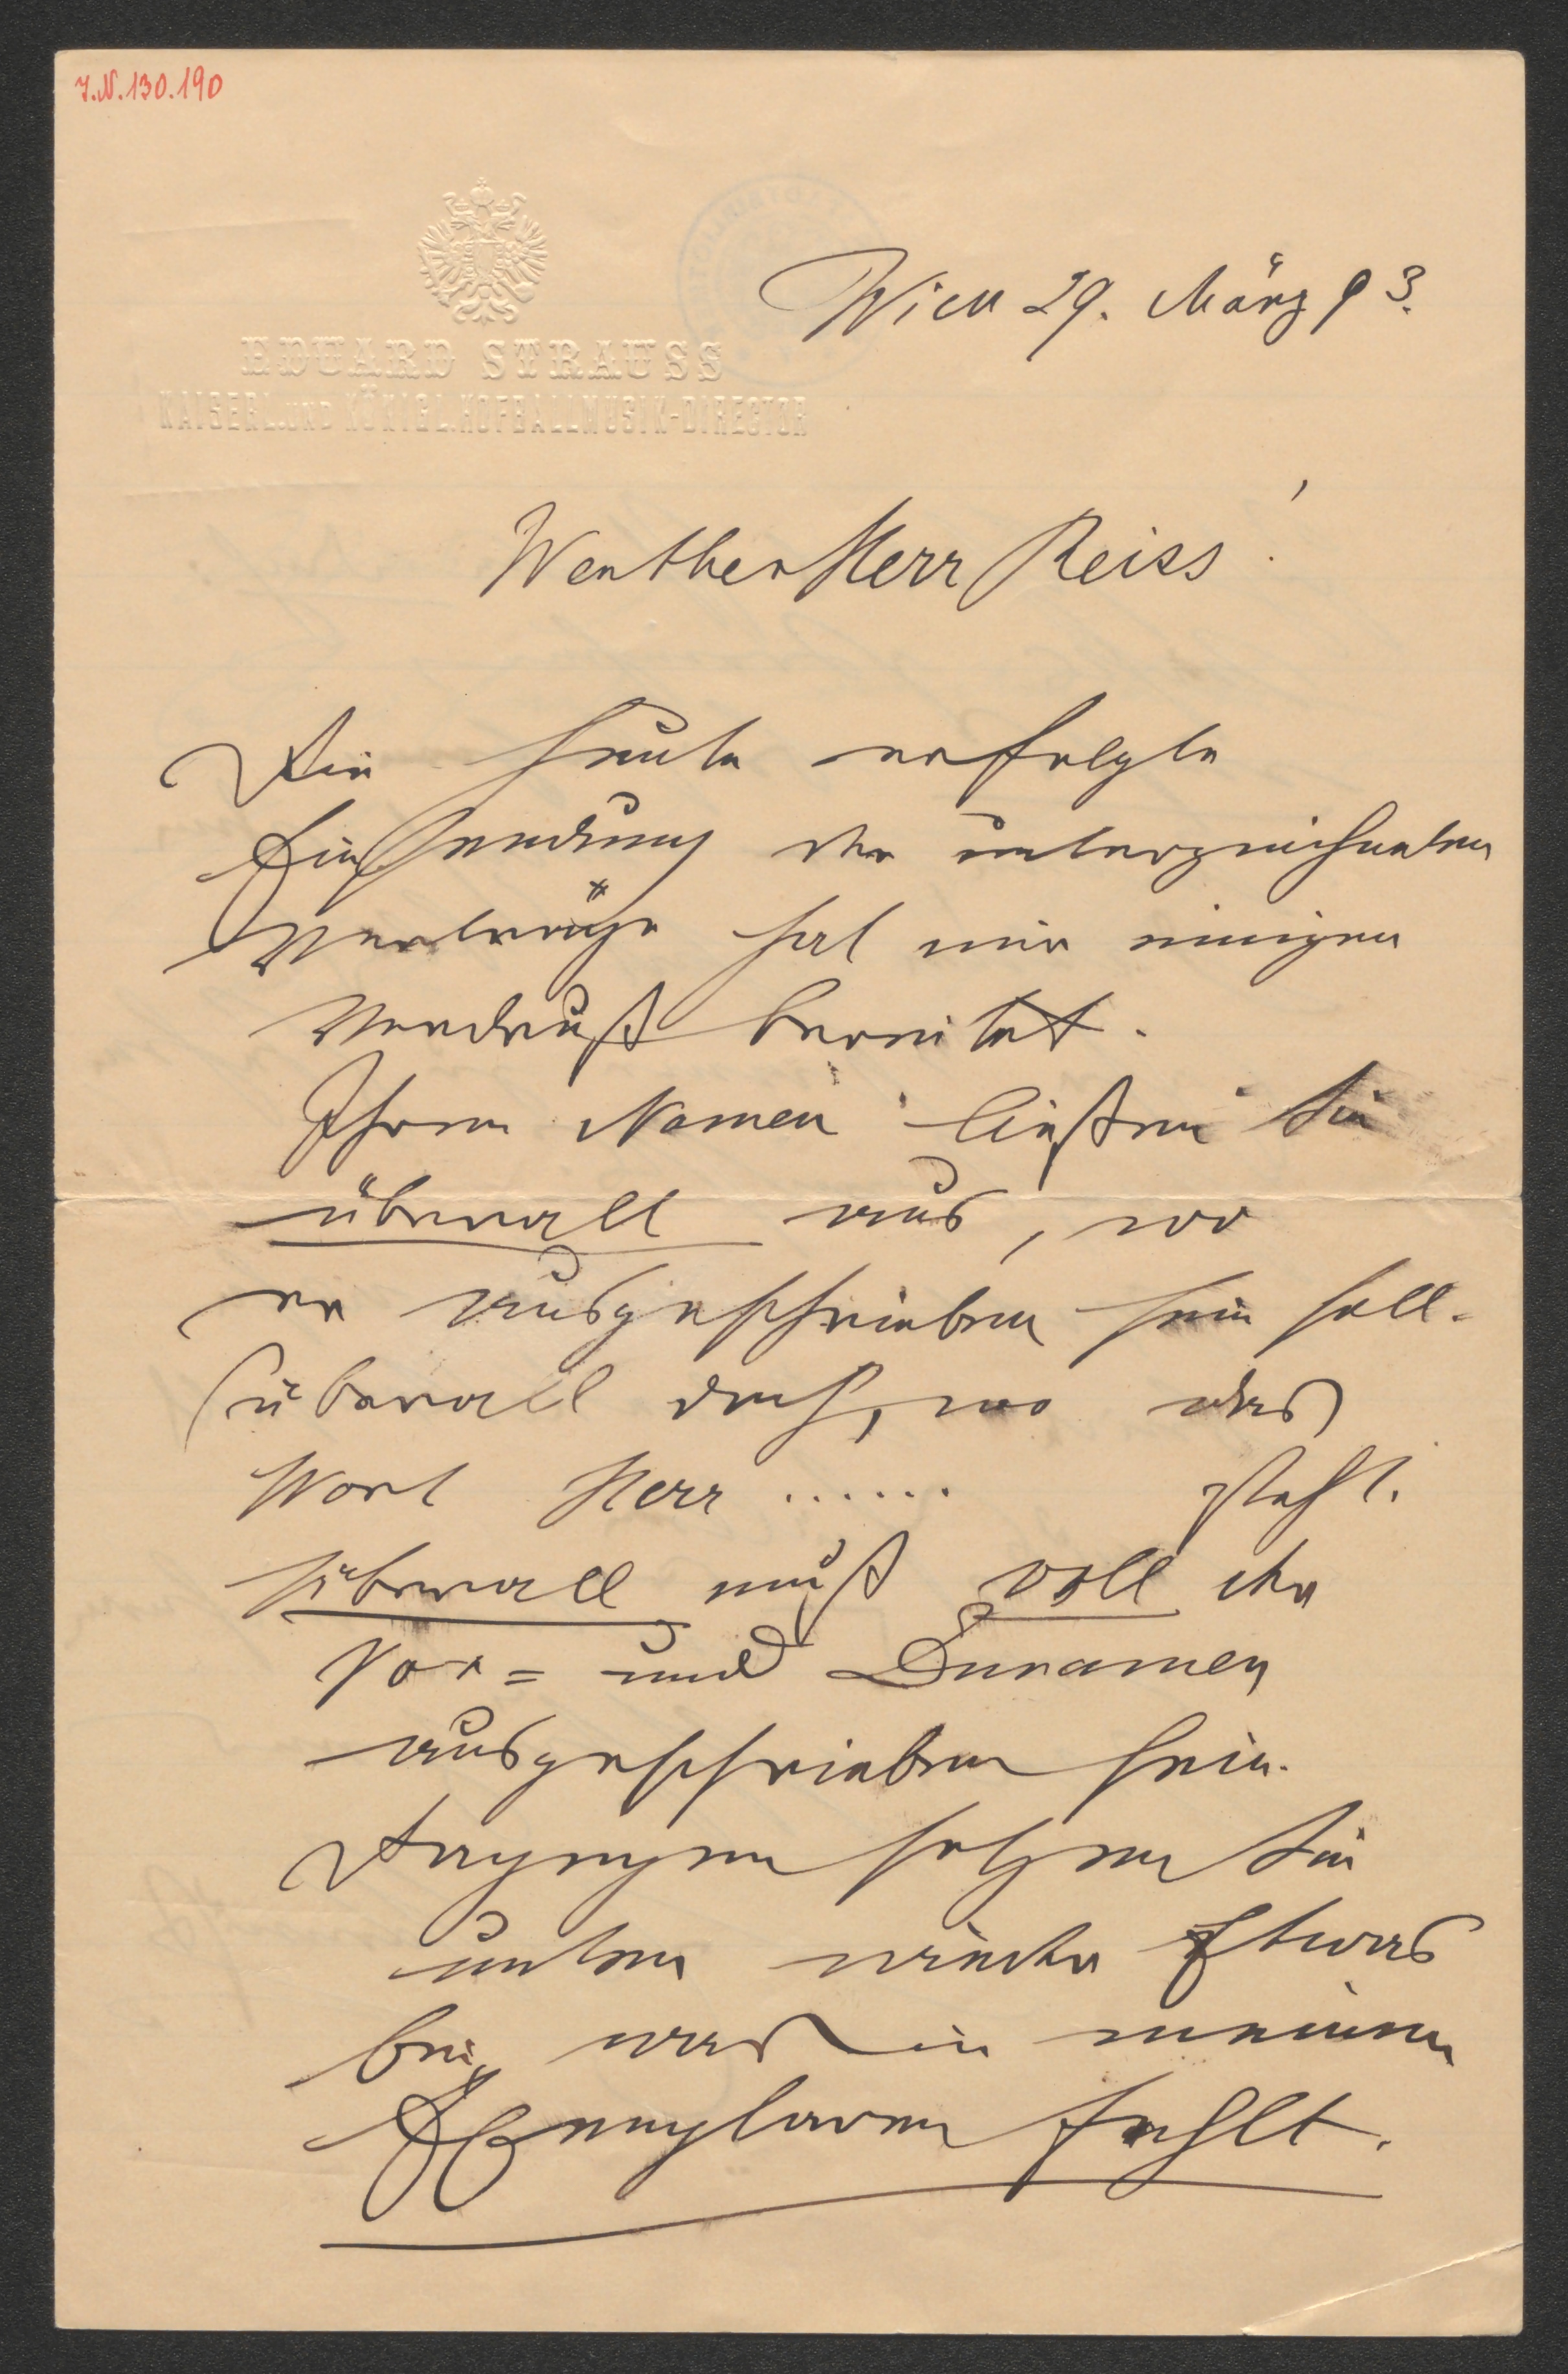 I.N. 130.190
EDUARD STRAUSS
KAISERL. UND KÖNIGL. HOFBALLMUSIK-DIRECTOR
Wien 29. März 93.
Werther Herr Reiss!
Die heute erfolgte
Einsendung der unterzeichneten
Verträge hat mir einigen
Verdruß bereitet.
Ihren Namen ließen Sie
überall aus, wo
er ausgeschrieben sein soll.
überall doch, wo das
Wort Herr ...... steht.
überall muß voll der
Vor= und Zunamen
ausgeschrieben sein.
Dagegen setzen Sie
unten wieder Etwas
bei, was in meinen
Exemplaren fehlt.